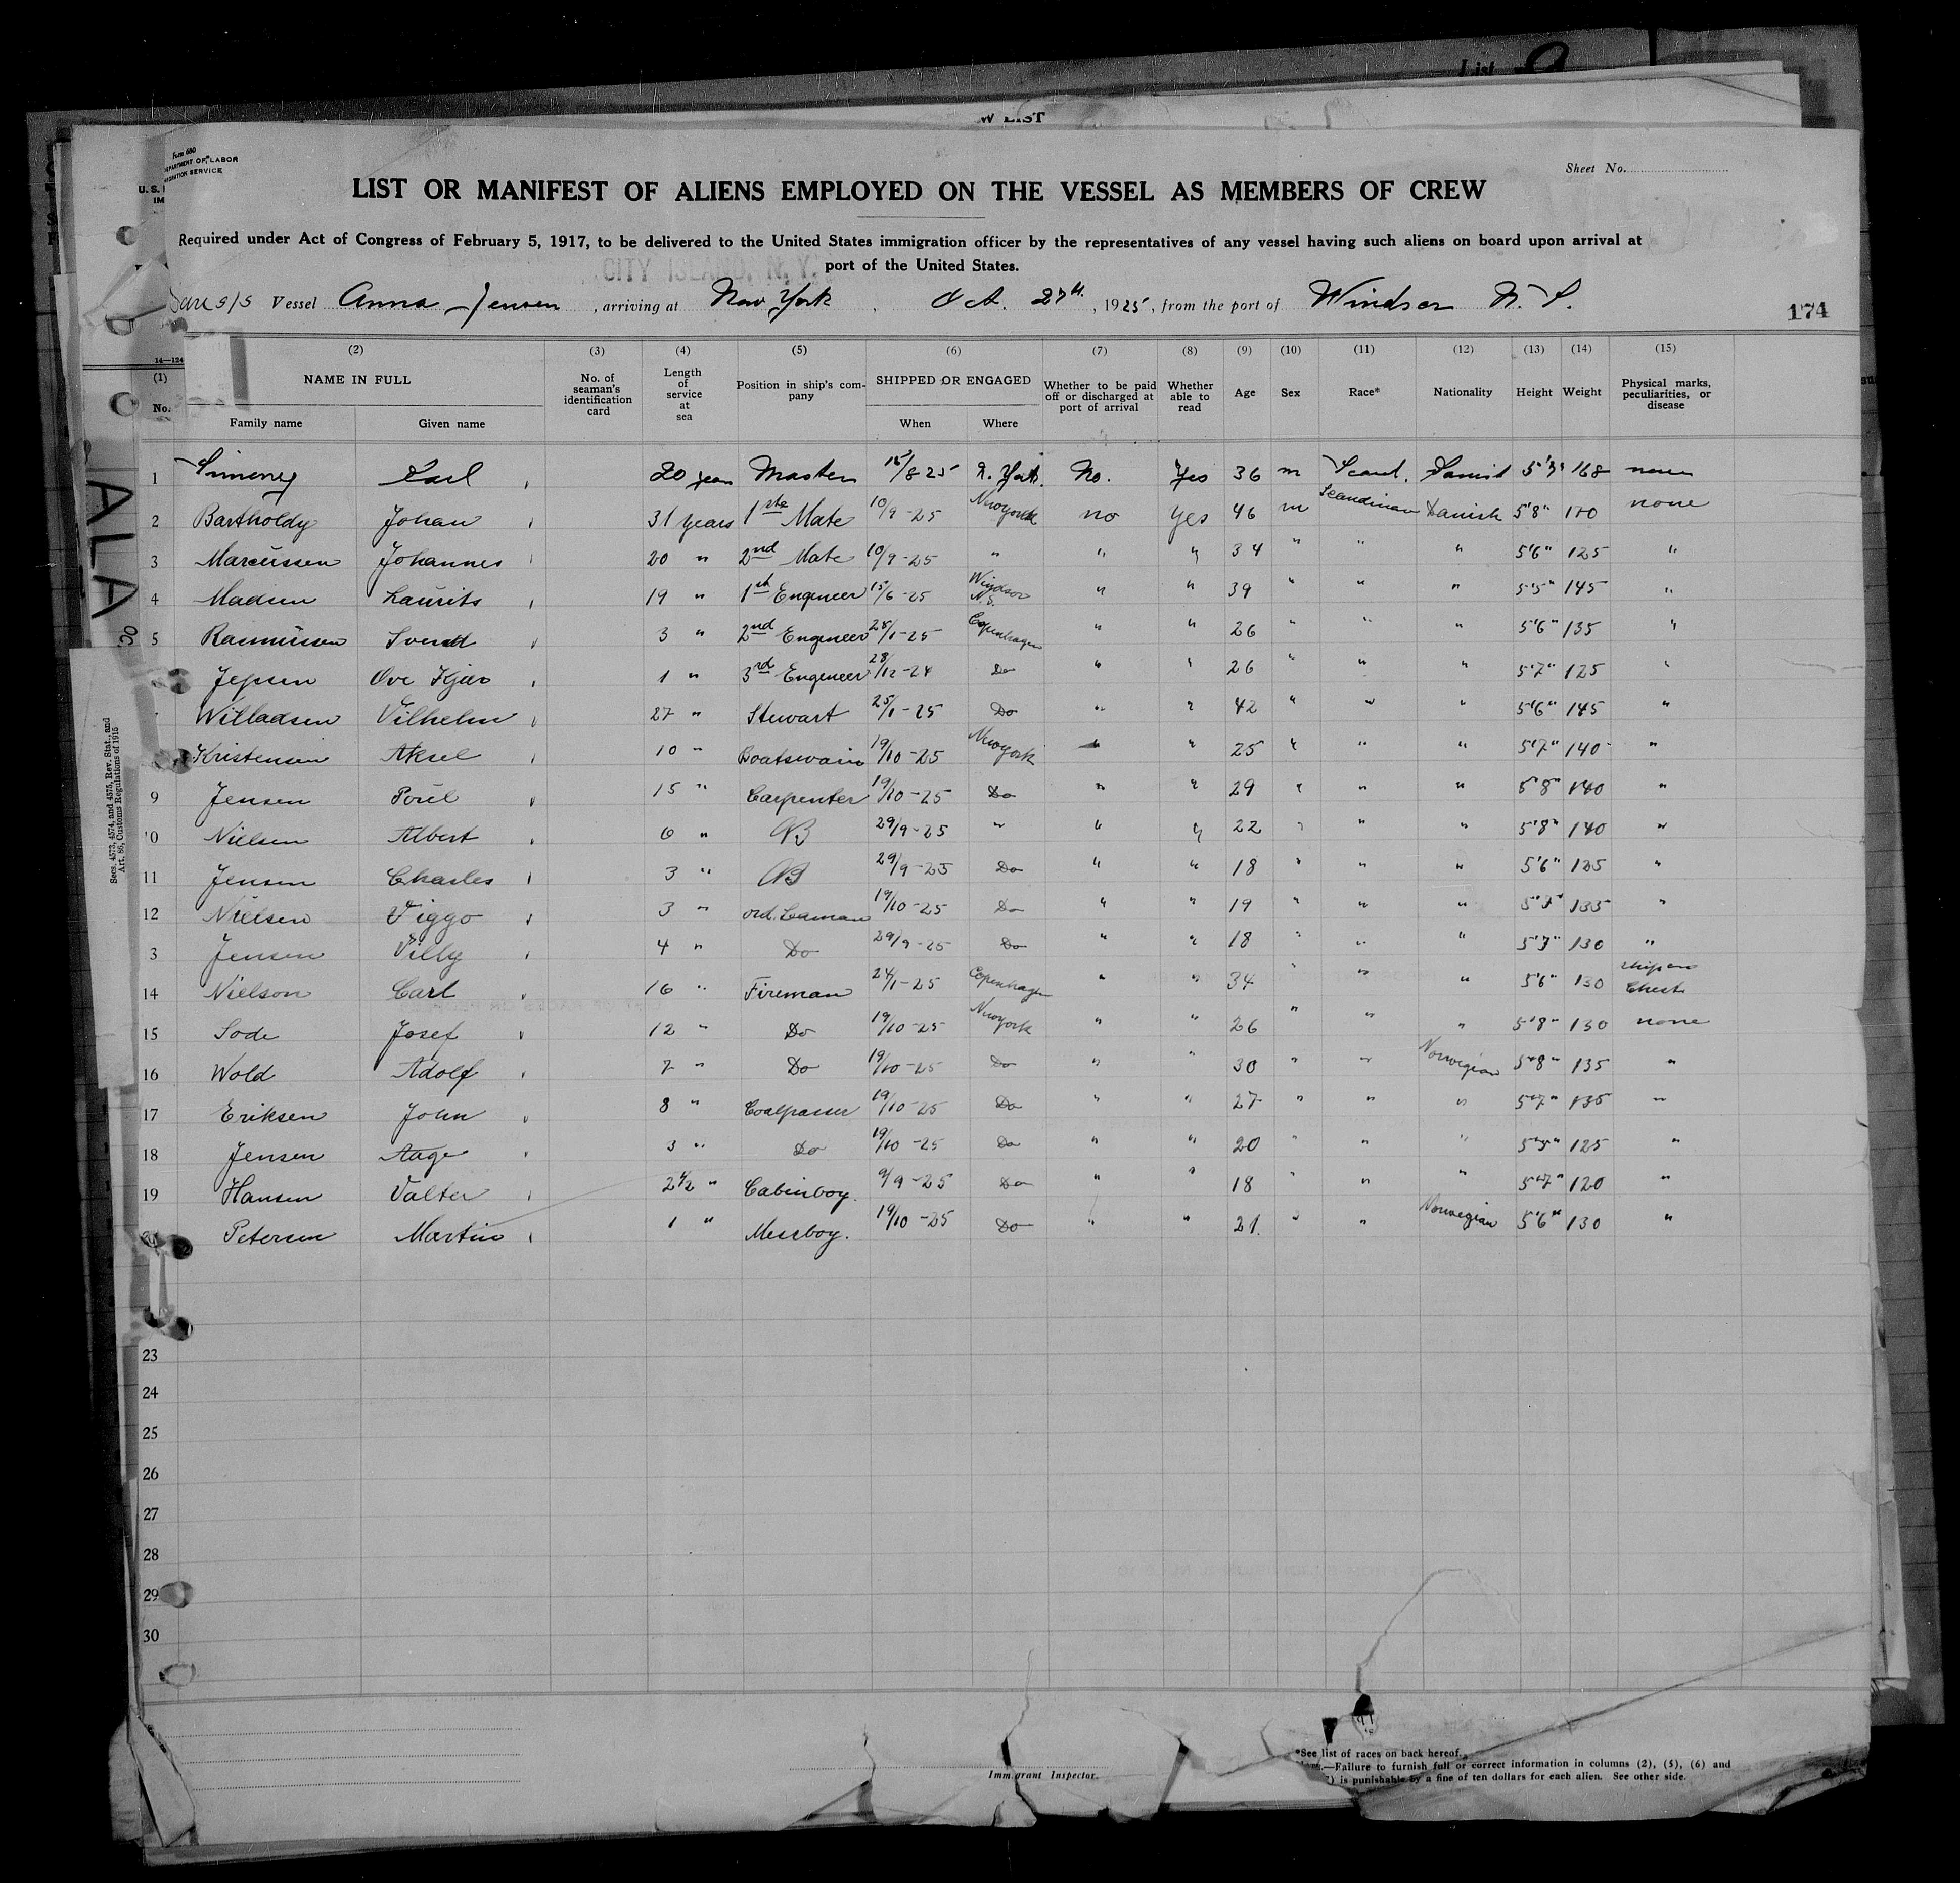 List 9
W LIST
Form 680
DEPARTMENT OF LABOR
IMMIGRATION SERVICE
U. S.
IM
Sheet No.
LIST OR MANIFEST OF ALIENS EMPLOYED ON THE VESSEL AS MEMBERS OF CREW
Required under Act of Congress of February 5, 1917, to be delivered to the United States immigration officer by the representatives of any vessel having such aliens on board upon arrival at
port of the United States.
CITY ISLAND, N. Y.
s/s Vessel Anna Jensen, arriving at New York, Oct. 27th, 1925, from the port of Windsor N. S.
174
14—124
(1) (2) (3) (4) (5) (6) (7) (8) (9) (10) (11) (12) (13) (14) (15)
No. NAME IN FULL No. of seaman's identification card Length of service at sea Position in ship's company SHIPPED OR ENGAGED Whether to be paid off or discharged at port of arrival Whether able to read Age Sex Race* Nationality Height Weight Physical marks, peculiarities, or disease
Family name Given name When Where
1 Simony Carl 20 years Master 15/8 25 N. York. No. Yes 36 m Scand. Danish 5'7" 168 none
2 Bartholdy Johan 31 years 1ste Mate 10/9-25 Newyork no Yes 46 m Scandinav Danish 5'8" 170 none
3 Marcussen Johannes 20 " 2nd Mate 10/9-25 " " " 34 " " " 5'6" 125 "
4 Madsen Laurits 19 " 1st Engineer 15/6-25 Windsor N.S. " " 39 " " " 5'5" 145 "
5 Rasmussen Svend 3 " 2nd Engineer 25/1-25 Copenhagen " " 26 " " " 5'6" 135 "
Jepsen Ove Kjær 1 " 3rd Engineer 28/12-24 Do " " 26 " " " 5'7" 125 "
Willadsen Vilhelm 27 " Stewart 25/1-25 Do " " 42 " " " 5'6" 145 "
Kristensen Aksel 10 " Boatswain 19/10-25 Newyork " " 25 " " " 5'7" 140 "
9 Jensen Poul 15 " Carpenter 19/10-25 Do " " 29 " " " 5'8" 140 "
10 Nielsen Albert 6 " AB 29/9-25 " " " 22 " " " 5'8" 140 "
11 Jensen Charles 3 " AB 29/9-25 Do " " 18 " " " 5'6" 125 "
12 Nielsen Viggo 3 " ord. Seaman 19/10-25 Do " " 19 " " " 135 "
3 Jensen Villy 4 " Do 29/9-25 Do " " 18 " " " 5'7" 130 "
14 Nielson Carl 16 " Fireman 24/1-25 Copenhagen " " 34 " " " 5'6" 130 Chest
15 Sode Josef 12 " Do 19/10-25 Newyork " " 26 " " " 5'8" 130 none
16 Wold Adolf 7 " Do 19/10-25 Do " " 30 " " Norwegian 5'8" 135 "
17 Eriksen John 8 " Coalpasser 19/10-25 Do " " 27 " " " 5'7" 135 "
18 Jensen Aage 3 " Do 19/10-25 Do " " 20 " " " 125 "
19 Hansen Valter 2½ " Cabinboy. 9/9-25 Do " " 18 " " " 5'7" 120 "
Petersen Martin 1 " Messboy. 19/10-25 Do " " 21. " " Norwegian 5'6" 130 "
23
24
25
26
27
28
29
30
ALA
Secs. 4573, 4574, and 4575, Rev. Stat., and
Art. 86, Customs Regulations of 1915
Immigrant Inspector.
*See list of races on back hereof.
Note.—Failure to furnish full or correct information in columns (2), (5), (6) and
(7) is punishable by a fine of ten dollars for each alien. See other side.